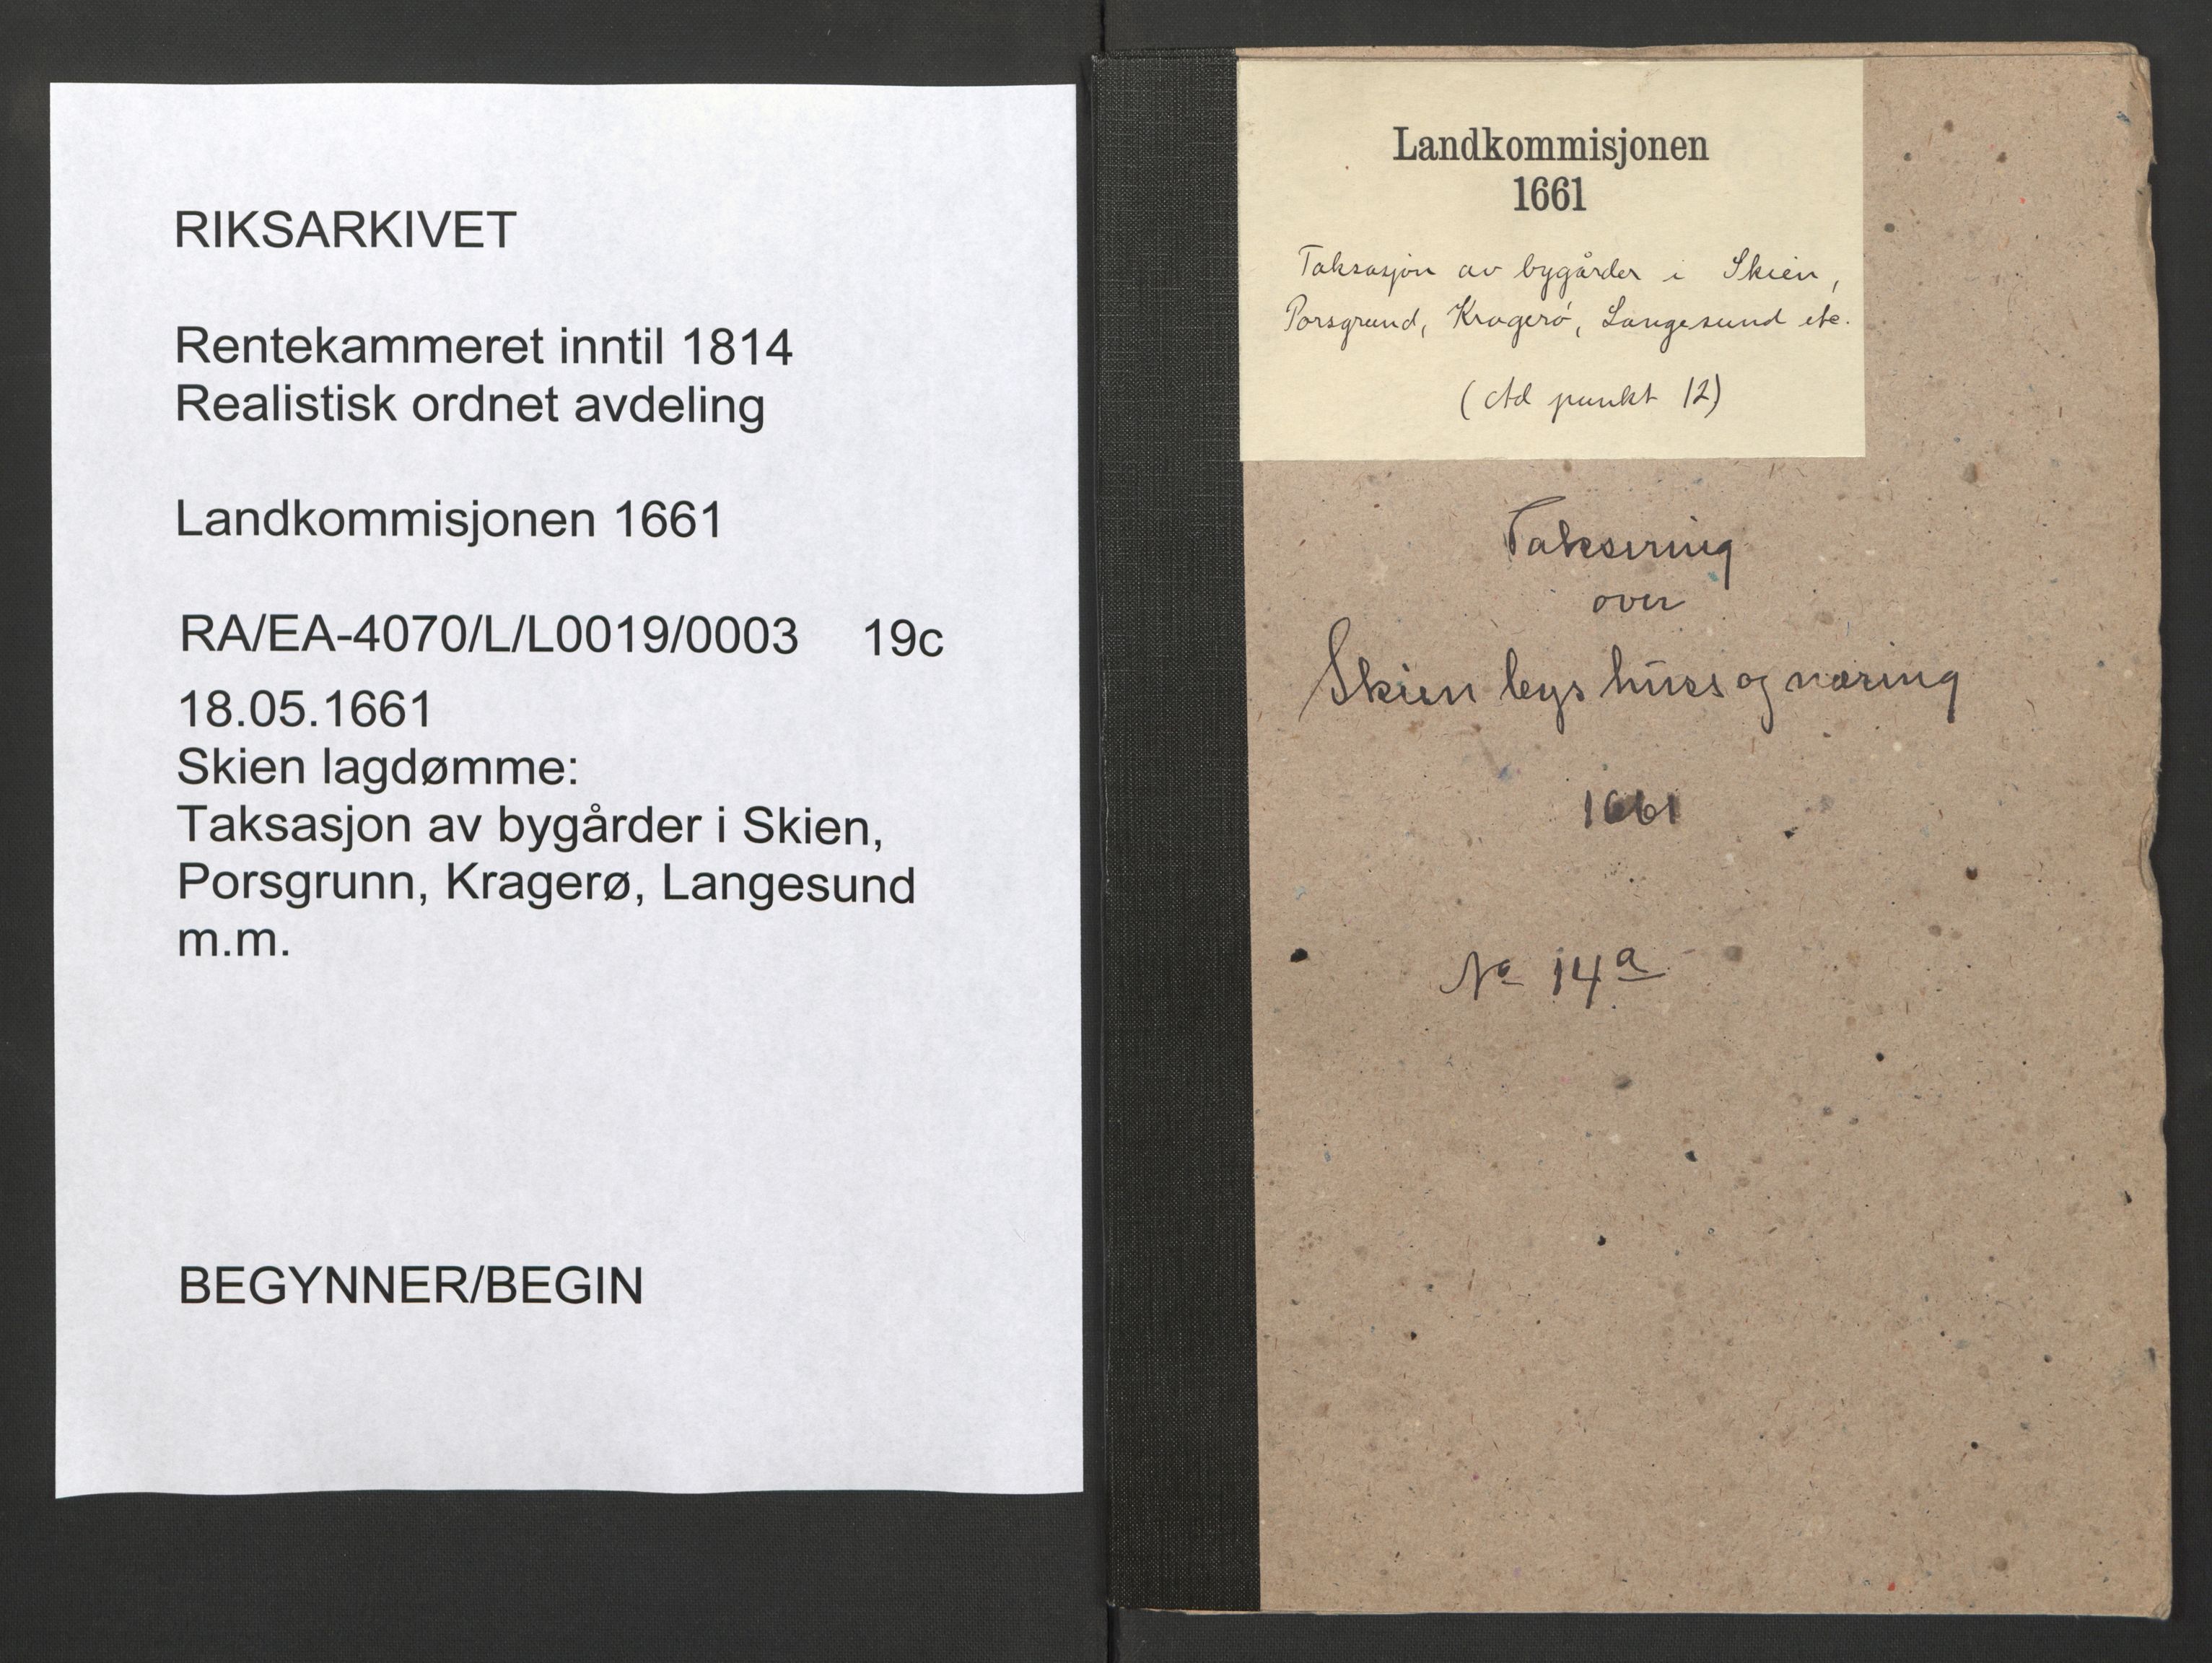 RIKSARKIVET
Rentekammeret inntil 1814
Realistisk ordnet avdeling
Landkommisjonen 1661
RA/EA-4070/L/L0019/0003 19c
18.05.1661
Skien lagdømme:
Taksasjon av bygårder i Skien,
Porsgrunn, Kragerø, Langesund
m.m.
BEGYNNER/BEGIN
Landkommisjonen
1661
Taksasjon av bygårder i Skien,
Porsgrund, Kragerø, Langesund etc.
(Ad punkt 12)
Taksering
over
Skien bys huse og næring
1661
No 14a